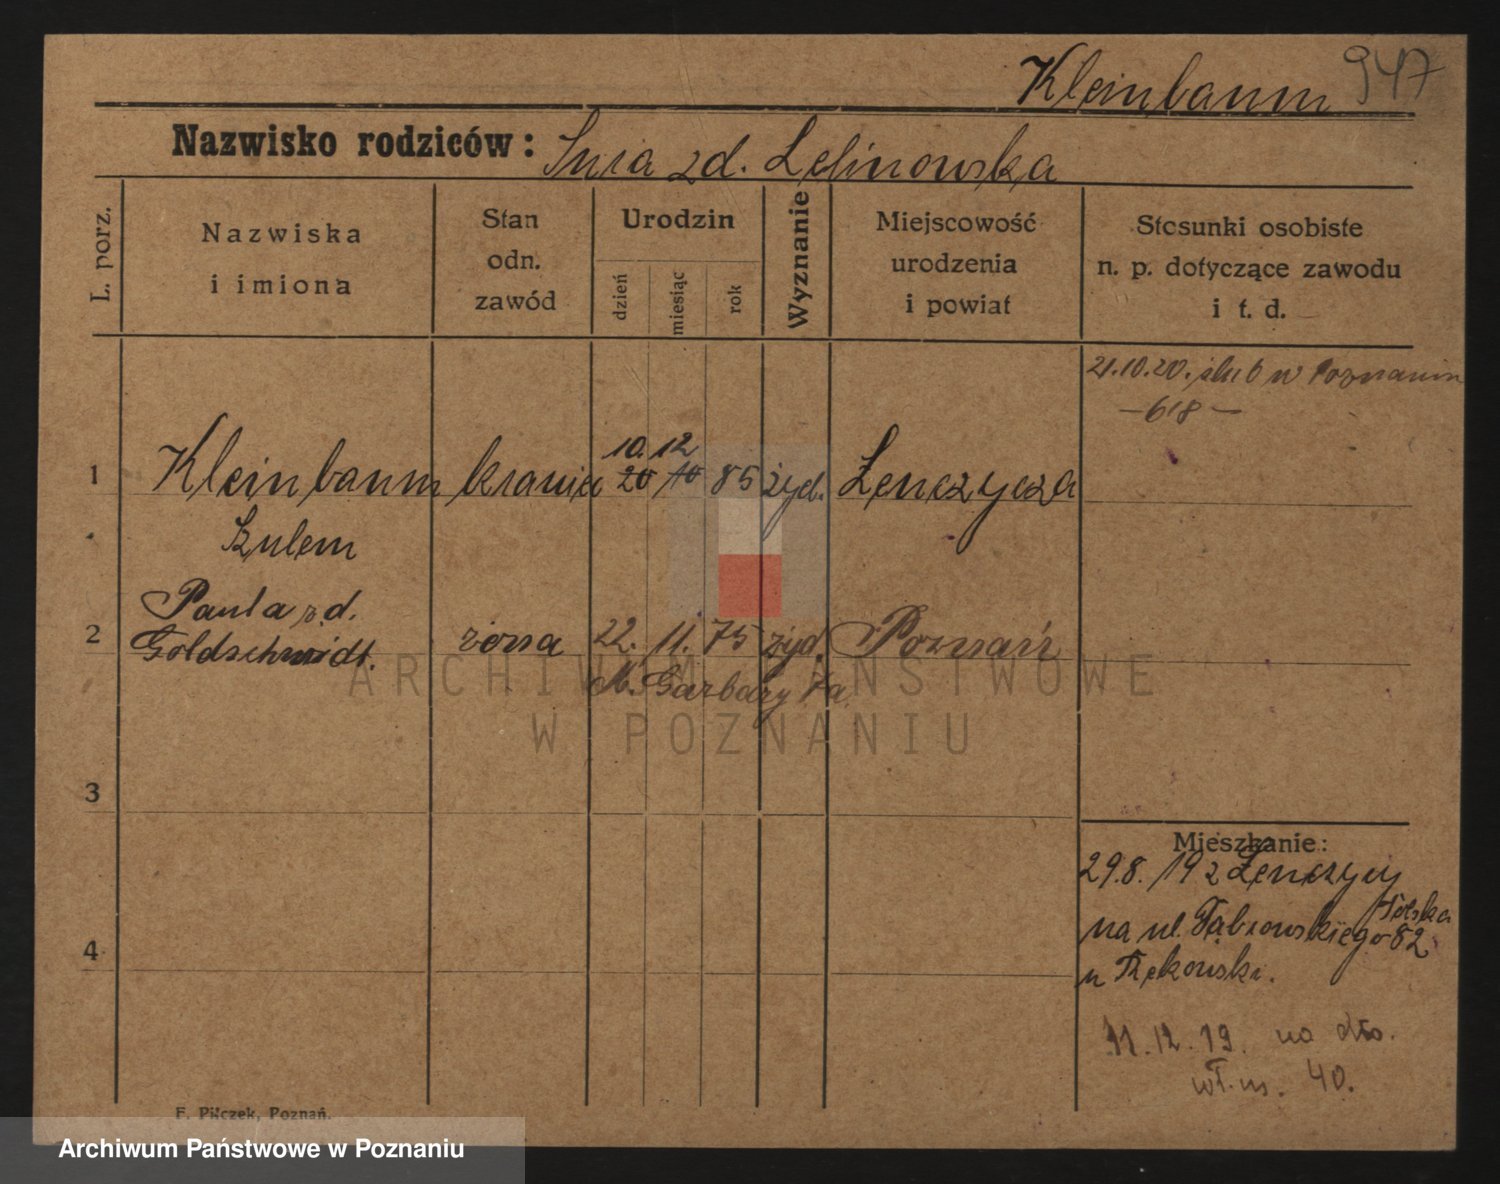 Kleinbaum 947
Nazwisko rodziców: zd. Lelinowska
L. porz.
Nazwiska
i imiona
Stan
odn.
zawód
Urodzin
dzień
miesiąc
rok
Wyznanie
Miejscowość
urodzenia
i powiat
Stosunki osobiste
n. p. dotyczące zawodu
i t. d.
21.10.20. ślub w Poznaniu
- 618 -
10. 12
1 Kleinbaum krawiec 20 10 85 żyd. Lenczycza
Szulem
Paula zd.
2 Goldschmidt. żona 22. 11. 75 żyd. Poznań
M. Garbary 7a.
ARCHIWUM PAŃSTWOWE
W POZNANIU
3
Mieszkanie:
29.8.19 z Lenczycy
Polska
na ul. Dąbrowskiego 82
4
u
11.12.19. na dto.
wł. m. 40.
F. Pilczek, Poznań.
Archiwum Państwowe w Poznaniu